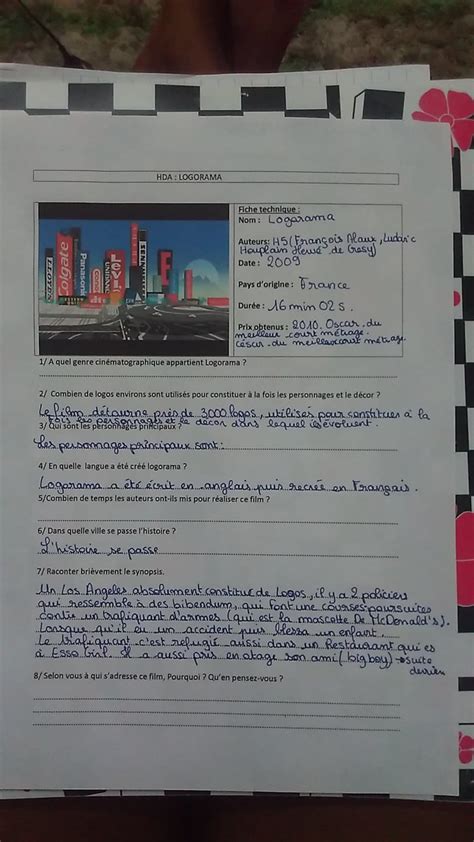 HDA : LOGORAMA
Fiche technique :
Nom : Logorama
Auteurs: H5 (François Alaux, Ludovic
Houplain Hervé de Crécy)
Date : 2009
Pays d'origine : France
Durée : 16 min 02 s.
Prix obtenus : 2010. Oscar du
meilleur court métrage.
César du meilleur court métrage
Colgate
Panasonic
LEVI'S
1/ A quel genre cinématographique appartient Logorama ?
2/ Combien de logos environs sont utilisés pour constituer à la fois les personnages et le décor ?
Le film détourne près de 3000 logos, utilisés pour constituer à la
fois les personnages et le décor dans lequel ils évoluent.
3/ Qui sont les personnages principaux ?
Les personnages principaux sont :
4/ En quelle langue a été créé logorama ?
Logorama a été écrit en anglais puis recréé en Français.
5/Combien de temps les auteurs ont-ils mis pour réaliser ce film ?
6/ Dans quelle ville se passe l'histoire ?
L'histoire se passe
7/ Raconter brièvement le synopsis.
Un Los Angeles absolument constitué de Logos, il y a 2 policiers
qui ressemble à des bibendum, qui font une courses poursuites
contre un trafiquant d'armes (qui est la mascotte De McDonald's).
Lorsque qu'il eu un accident puis blessa un enfant.
Le trafiquant c'est refugié aussi dans un Restaurant qui es
à Esso Girl. Il a aussi pris en otage son ami (big boy) → suite
derrière
8/ Selon vous à qui s'adresse ce film, Pourquoi ? Qu'en pensez-vous ?